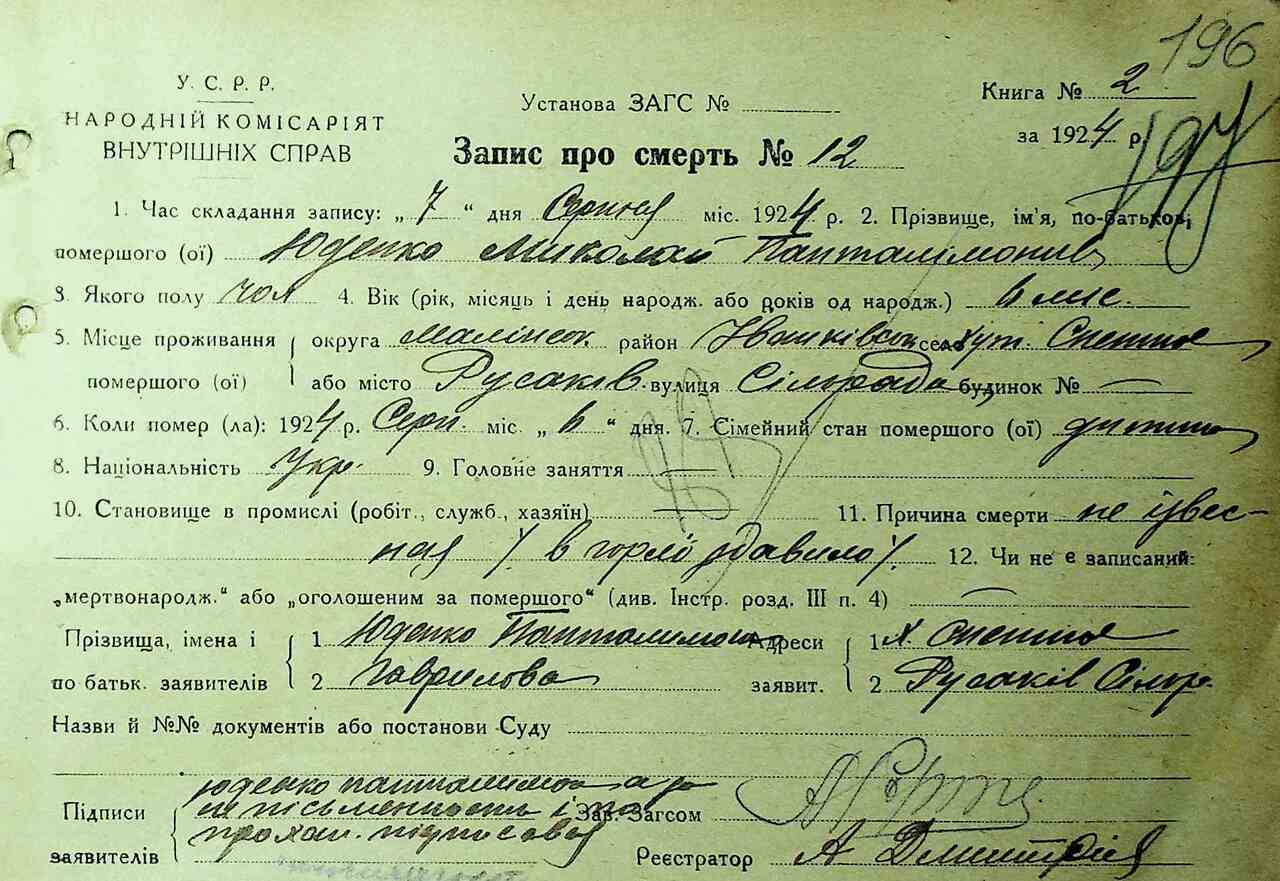 196
197
У. С. Р. Р.
НАРОДНІЙ КОМІСАРІЯТ
ВНУТРІШНІХ СПРАВ
Установа ЗАГС №
Книга № 2
за 1924 р.
Запис про смерть № 12
1. Час складання запису: „ 7 “ дня Серпня міс. 1924 р. 2. Прізвище, ім'я, по-батькові,
помершого (ої) Юденко Миколай Панталімонив
3. Якого полу чол 4. Вік (рік, місяць і день народж. або років од народж.) 6 мис.
5. Місце проживання округа Малінск район Іванківск село хут.
помершого (ої) або місто Русаків вулиця Сілърада будинок № —
6. Коли помер (ла): 1924 р. Серп. міс. „ 6 “ дня. 7. Сімейний стан помершого (ої) дитина
8. Національність Укр. 9. Головне заняття
10. Становище в промислі (робіт., служб., хазяїн) 11. Причина смерти не ізвес-
ная /. в горлі здавило /. 12. Чи не є записаний:
„мертвонародж.“ або „оголошеним за помершого“ (див. Інстр. розд. III п. 4) —
Прізвища, імена і 1 Юденко Панталимон Адреси 1 х.
по батьк. заявителів 2 Гаврилова заявит. 2 Русаків Сілър.
Назви й №№ документів або постанови Суду
Юденко панталимон а за
Підписи не письменность і по Зав. Загсом
прохан. підписався
заявителів Реєстратор А